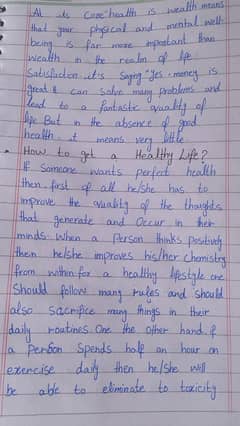 At its core "health is wealth" means
that your physical and mental well-
being is far more important than
wealth in the realm of life
Satisfaction. it's Saying "Yes, money is
great & can Solve many problems and
lead to a fantastic quality of
life But in the absence of good
health, it means very little
• How to get a Healthy Life?
If Someone wants perfect health
then first of all he/she has to
improve the quality of the thoughts
that generate and Occur in their
minds. When a Person thinks positively
then he/she improves his/her Chemistry
from within for a healthy lifestyle one
Should follow many rules and should
also Sacrifice many things in their
daily routines. One the other hand, if
a Person Spends half an hour on
exercise daily then he/she will
be able to eliminate to toxicity